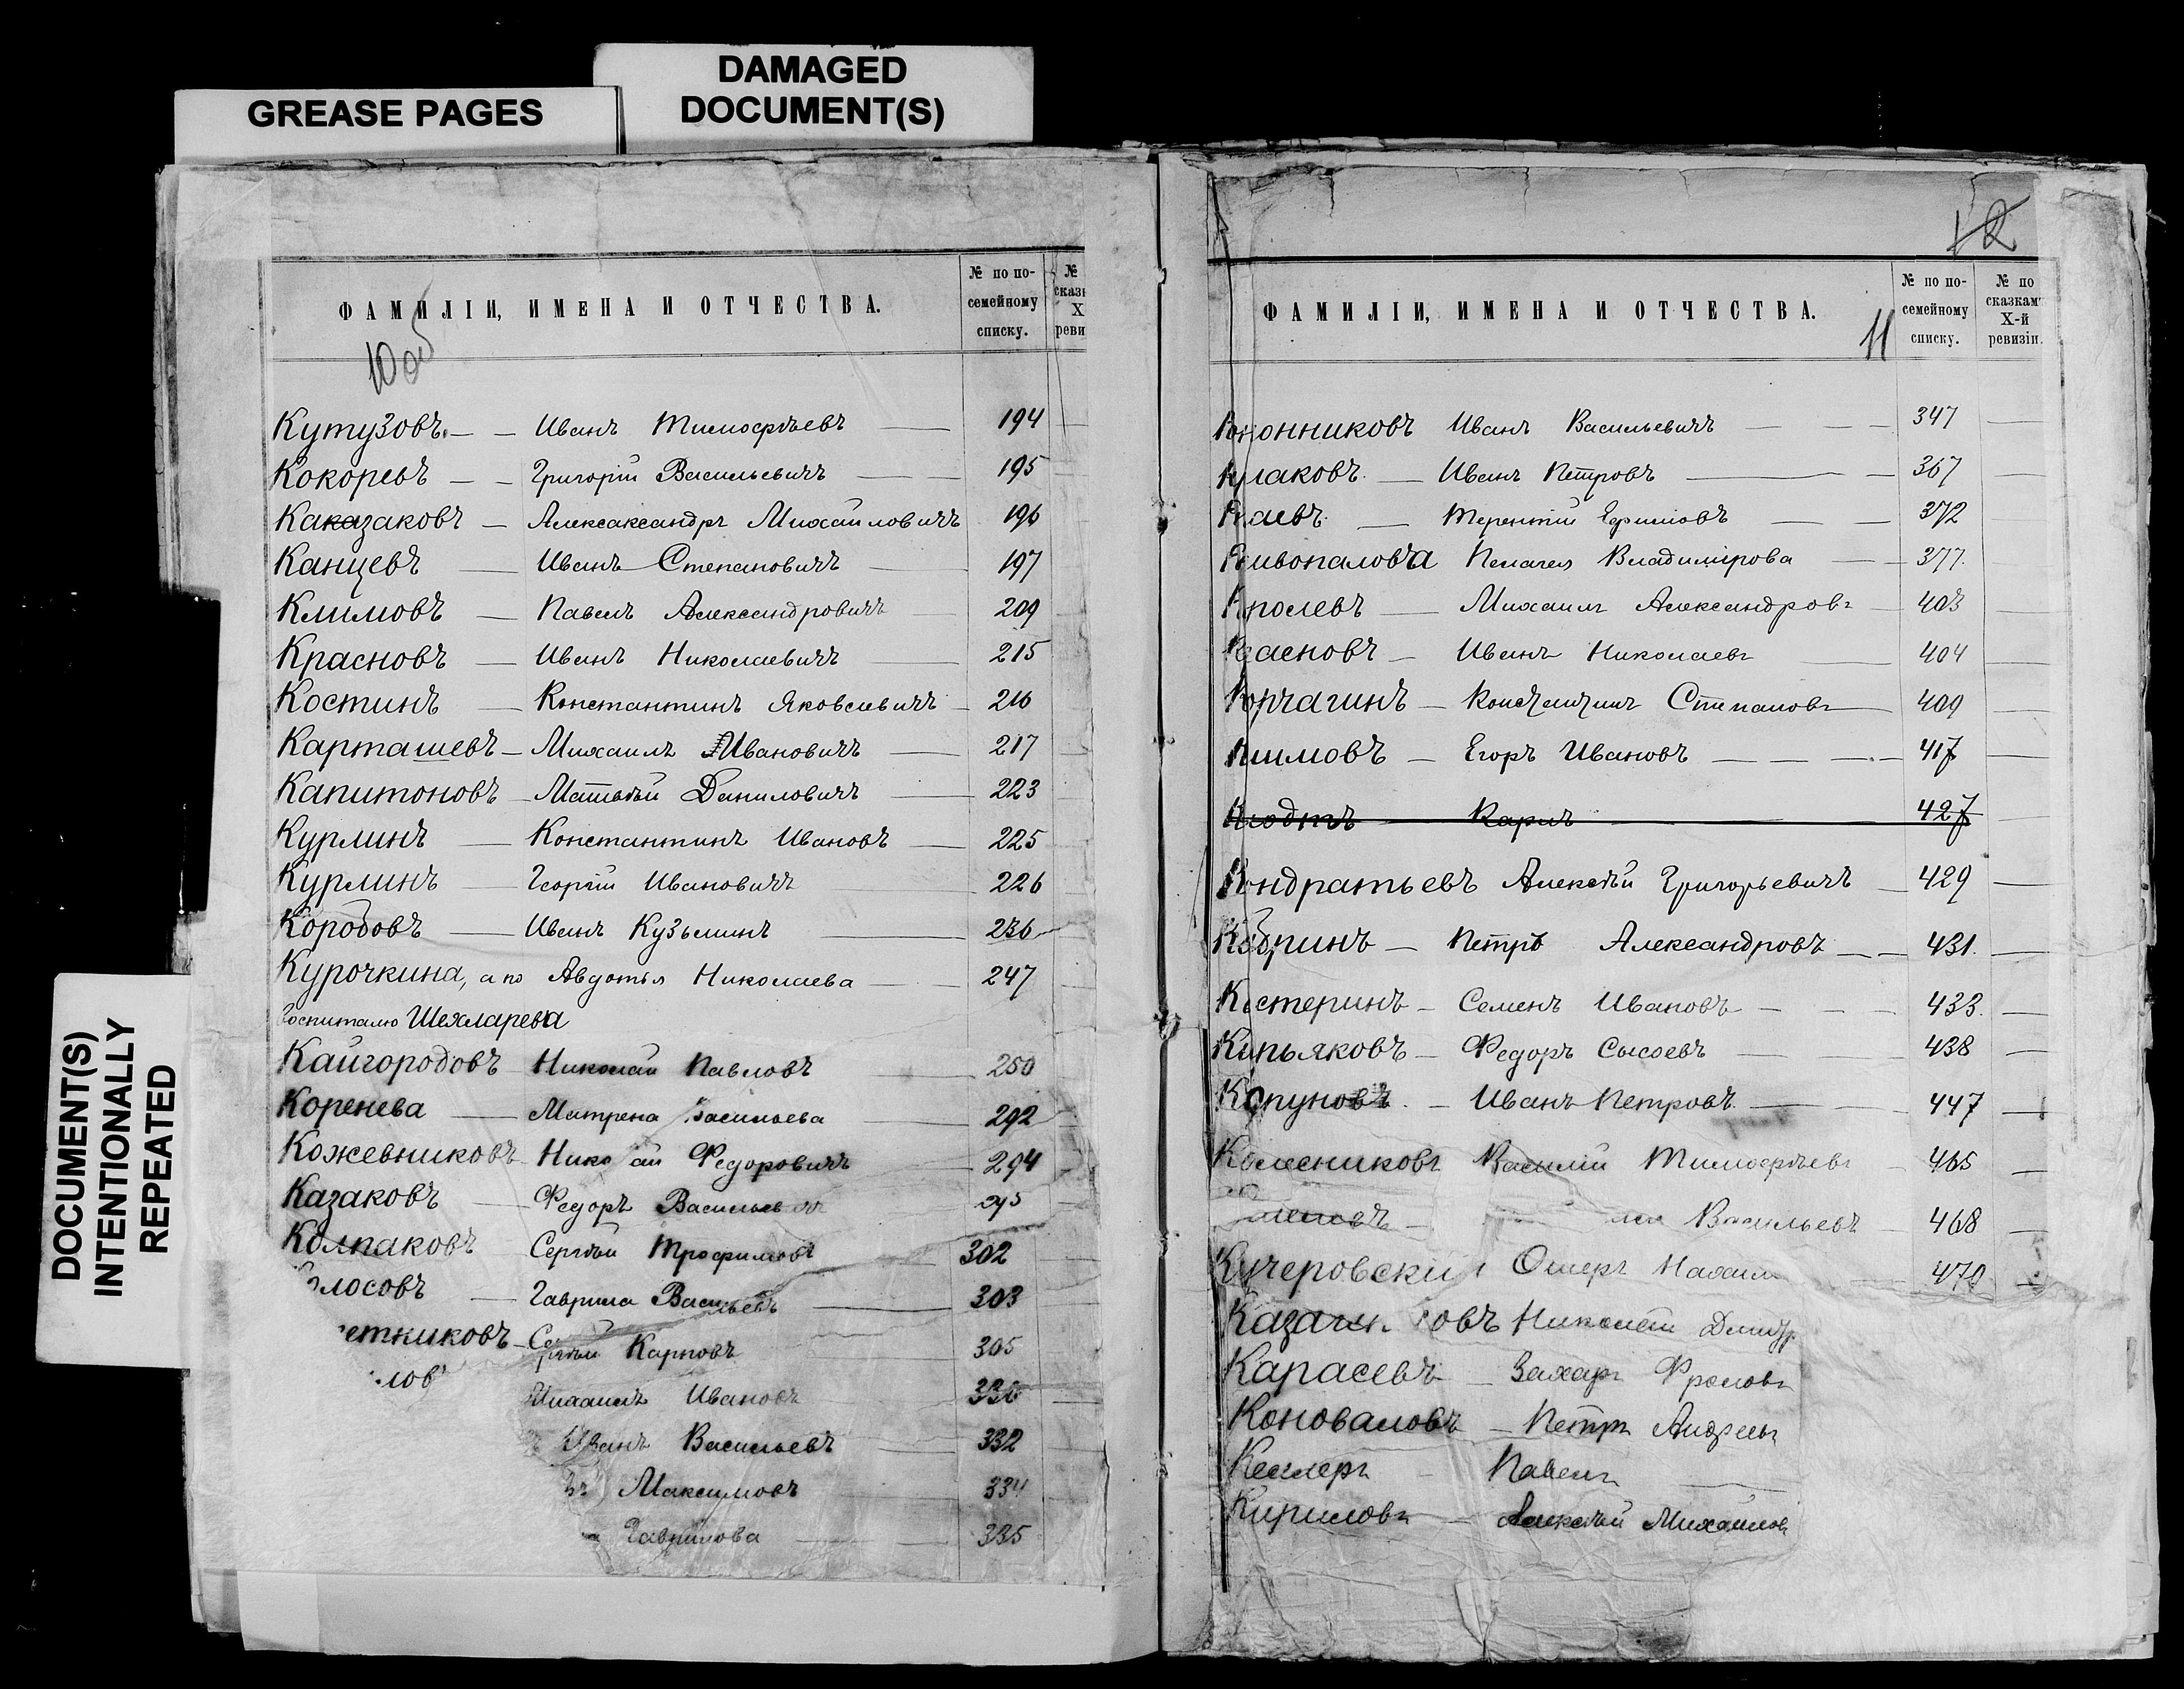 GREASE PAGES
DAMAGED
DOCUMENT(S)
DOCUMENT(S)
INTENTIONALLY
REPEATED
ФАМИЛІИ, ИМЕНА И ОТЧЕСТВА.
№ по по-
семейному
списку.
№
сказ
X
реви
10 об
Кутузовъ Иванъ Тимофѣевъ 194
Кокоревъ Григорій Васильевичъ 195
Каказаковъ Алексаксандръ Михаиловичъ 196
Канцевъ Иванъ Степановичъ 197
Климовъ Павелъ Александровичъ 209
Красновъ Иванъ Николаевичъ 215
Костинъ Константинъ Яковлевичъ 216
Карташевъ Михаилъ Ивановичъ 217
Капитоновъ Матвѣй Даниловичъ 223
Курлинъ Константинъ Ивановъ 225
Курлинъ Георгій Ивановичъ 226
Коробовъ Иванъ Кузьминъ 236
Курочкина, а по Авдотья Николаева 247
Госпиталю
Кайгородовъ Николай Павловъ 250
Коренева Матрена Васильева 292
Кожевниковъ Николай Федоровичъ 294
Казаковъ Федоръ 295
Колпаковъ Сергѣй Трофимовъ 302
лосовъ Гаврила Васильевъ 303
етниковъ Сергѣй Карповъ 305
лов Михаилъ Ивановъ
Иванъ Васильевъ 332
Максимовъ 334
Гаврилова 335
12
ФАМИЛІИ, ИМЕНА И ОТЧЕСТВА.
11
№ по по-
семейному
списку.
№ по
сказкам
X-й
ревизіи.
Иванъ Васильевичъ 347
Иванъ Петровъ 367
Терентій Ефимовъ 372
Кривопалова Пелагея Владимірова 377
Михаилъ Александровъ 403
Красновъ Иванъ Николаевъ 404
Корчагинъ Константинъ Степановъ 409
Климовъ Егоръ Ивановъ 417
Карлъ 427
Кондратьевъ Алексѣй Григорьевичъ 429
Кобринъ Петръ Александровъ 431.
Костеринъ Семенъ Ивановъ 433.
Федоръ Сысоевъ 438
Иванъ Петровъ 447
Колесниковъ Василій Тимофѣевъ 465
Васильевъ 468
Кучеровскій Ошеръ 470
Николай
Карасевъ Захаръ Фроловъ
Коноваловъ Петръ Андреевъ
Кеслеръ Павелъ
Кириловъ Алексѣй Михайловъ